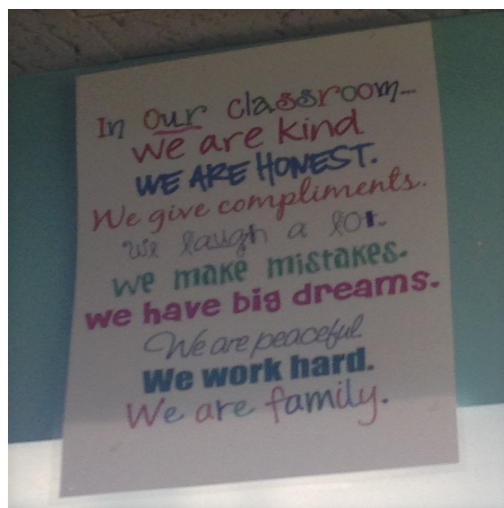 In our classroom...
we are kind
WE ARE HONEST.
We give compliments.
we laugh a lot.
we make mistakes.
we have big dreams.
We are peaceful
We work hard.
We are family.